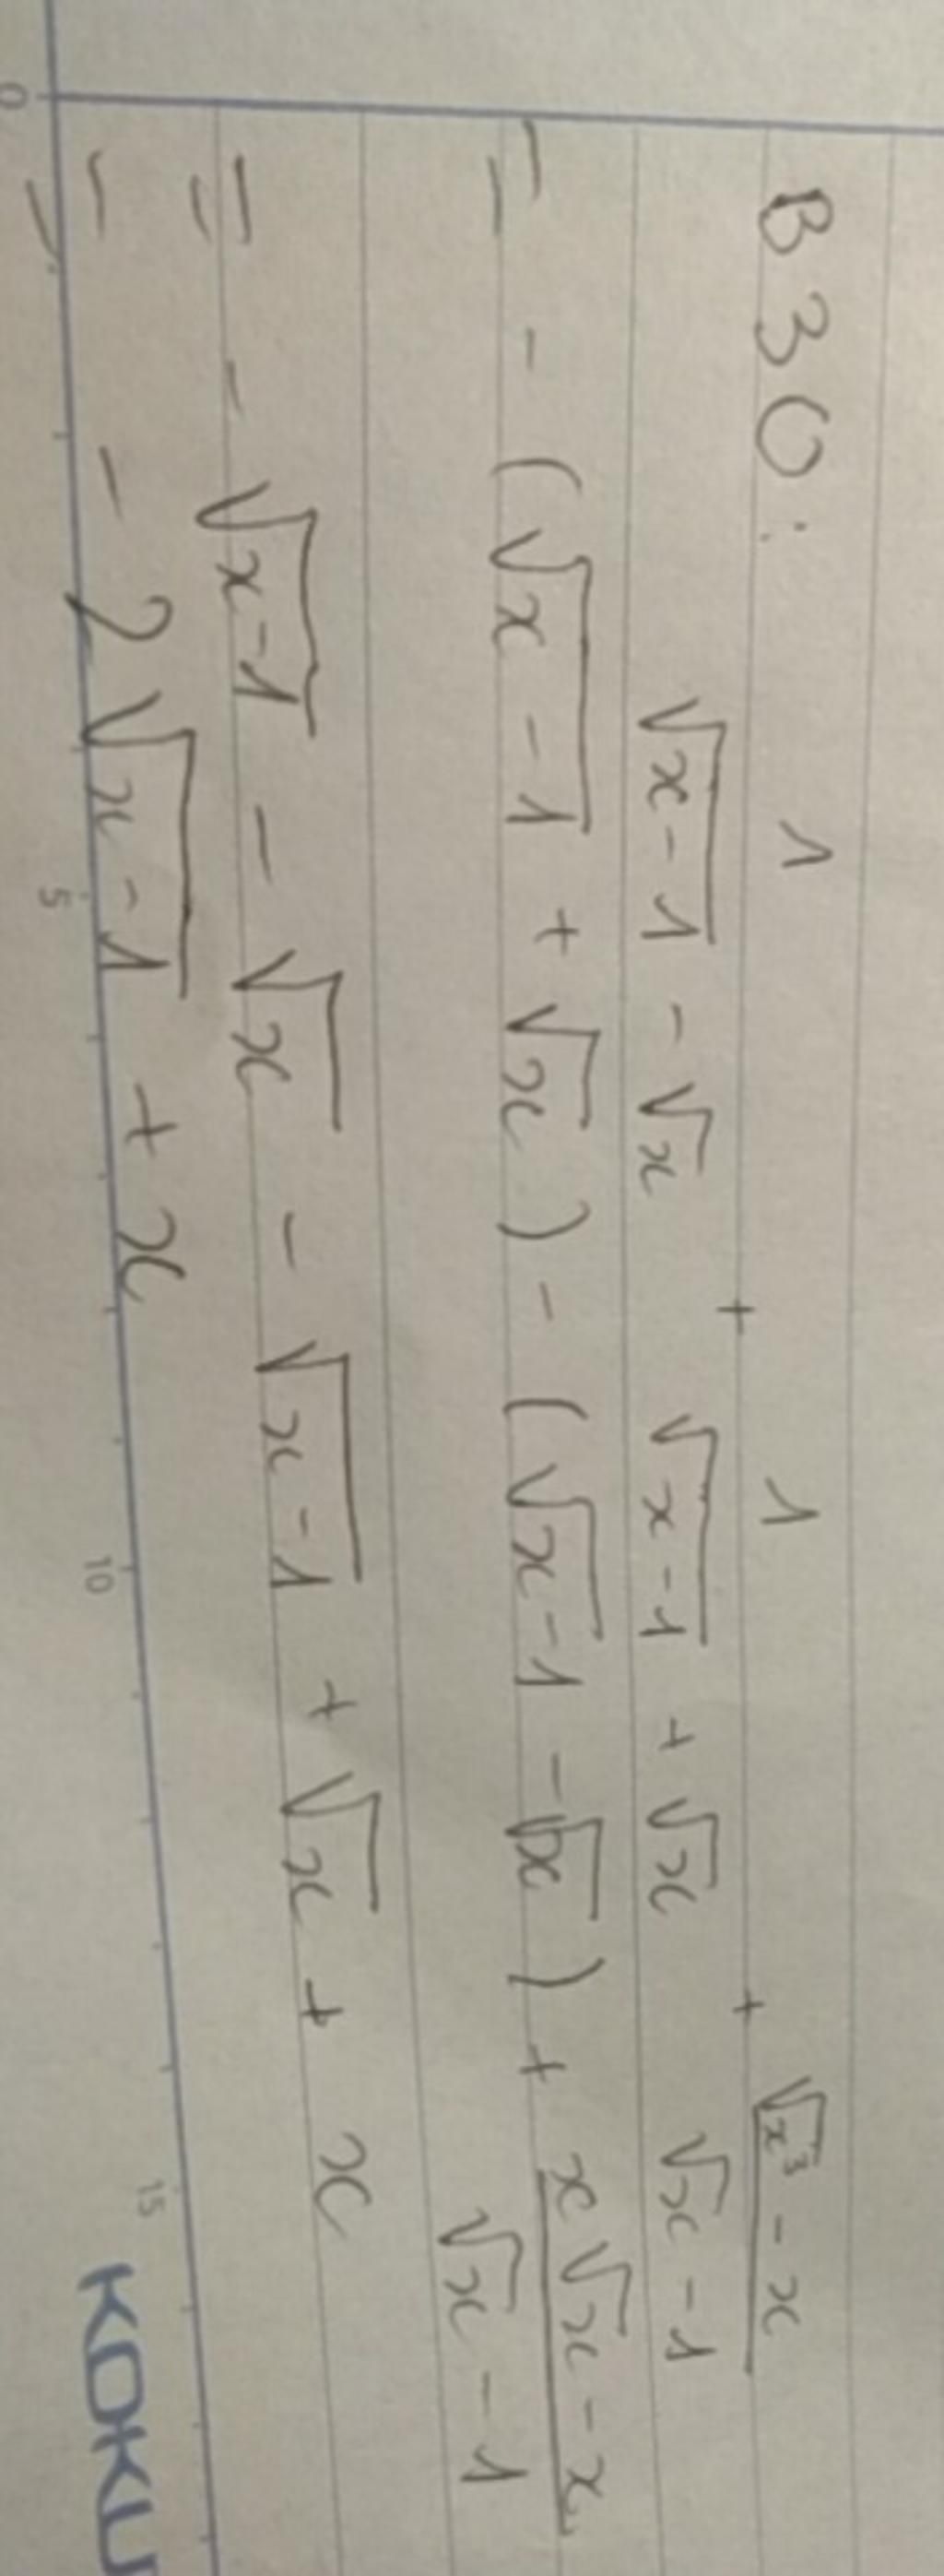 B30:
1/(√(x-1) - √x) + 1/(√(x-1) + √x) + (√(x³) - x)/(√x - 1)
= - (√(x-1) + √x) - (√(x-1) - √x) + (x√x - x)/(√x - 1)
= - √(x-1) - √x - √(x-1) + √x + x
= - 2√(x-1) + x
0 5 10 15
KOKU